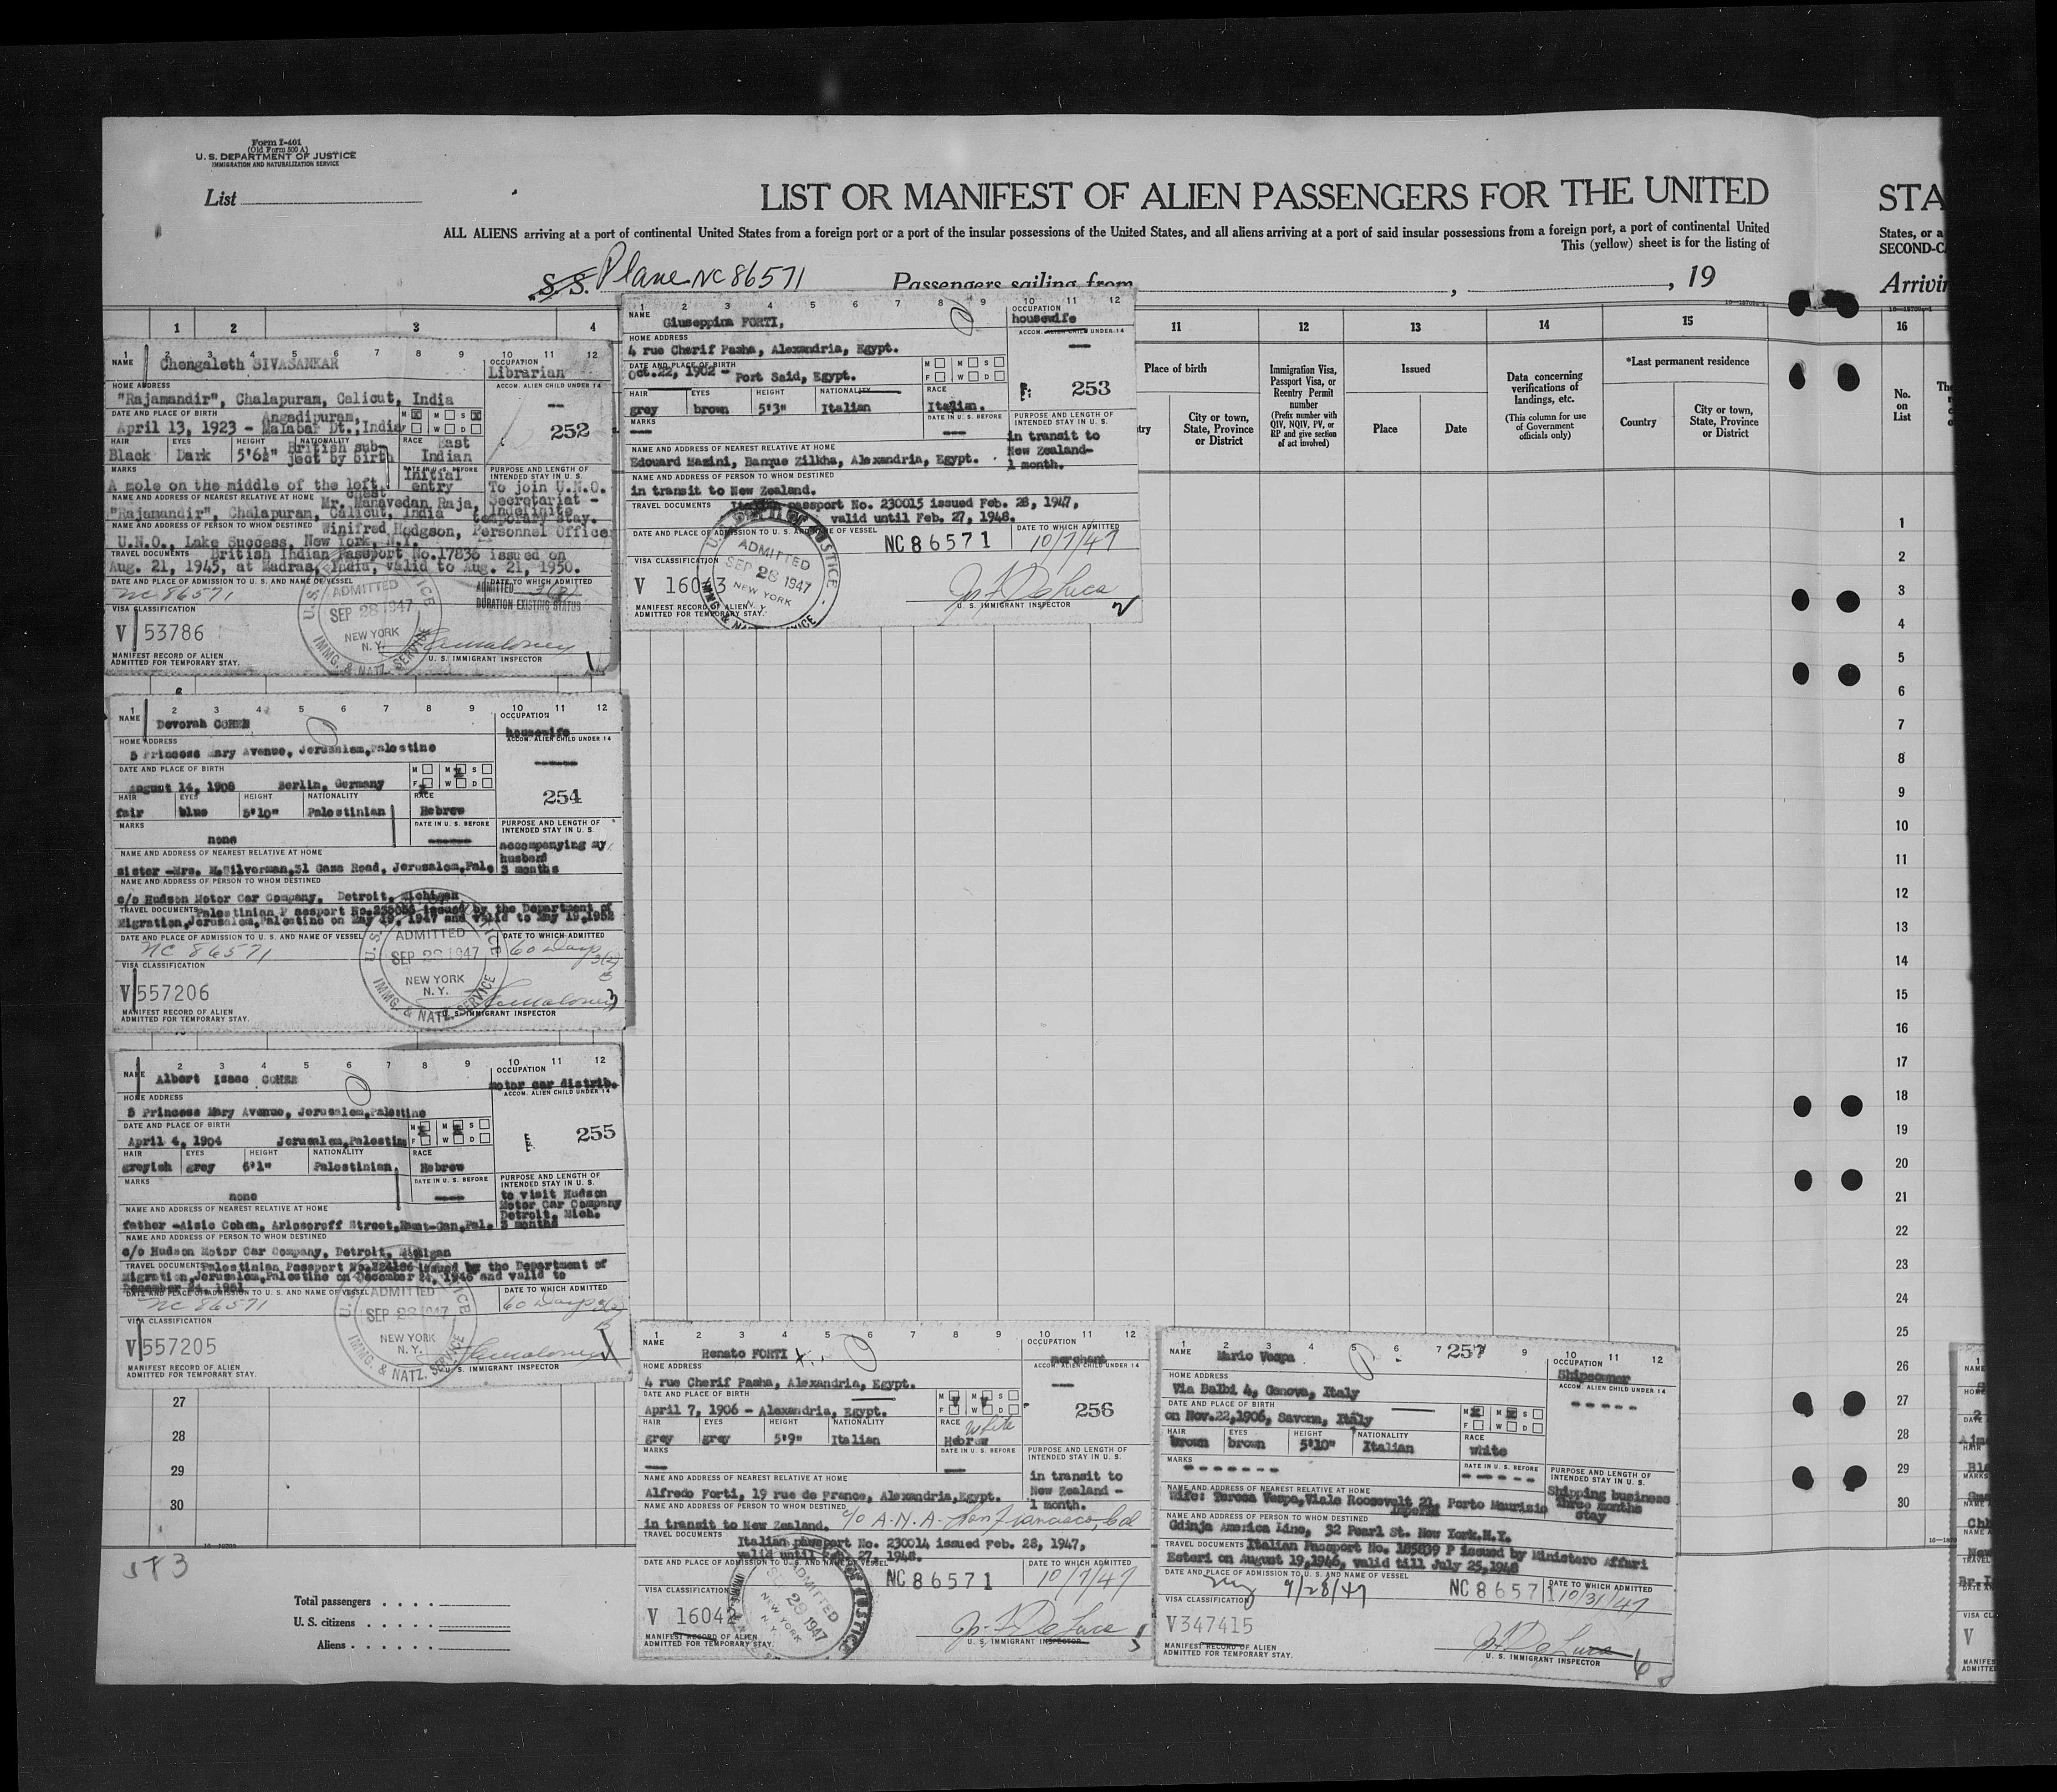 Form I-401
(Old Form 500 A)
U. S. DEPARTMENT OF JUSTICE
IMMIGRATION AND NATURALIZATION SERVICE
List
LIST OR MANIFEST OF ALIEN PASSENGERS FOR THE UNITED
STA
ALL ALIENS arriving at a port of continental United States from a foreign port or a port of the insular possessions of the United States, and all aliens arriving at a port of said insular possessions from a foreign port, a port of continental United
States, or a
This (yellow) sheet is for the listing of
SECOND-C
S.S. Plane NC 86571 Passengers sailing from , , 19
Arrivin
1 2 3 4
11 12 13 14 15 16
Place of birth
City or town, State, Province or District
Immigration Visa, Passport Visa, or Reentry Permit number
(Prefix number with QIV, NQIV, PV, or RP and give section of act involved)
Issued
Place Date
Data concerning verifications of landings, etc.
(This column for use of Government officials only)
*Last permanent residence
Country
City or town, State, Province or District
No. on List
1 2 3 4 7 8 9 10 11 12
NAME Chengaleth SIVASANKAR
OCCUPATION Librarian
HOME ADDRESS
ACCOM. ALIEN CHILD UNDER 14
"Rajamandir", Chalapuram, Calicut, India
--
DATE AND PLACE OF BIRTH Angadipuram,
April 13, 1923 - Malabar Dt., India
M M S
F W D
252
HAIR EYES HEIGHT NATIONALITY RACE
Black Dark 5'6½" British subject by birth East Indian
MARKS
A mole on the middle of the left chest
DATE IN U. S. BEFORE
Initial entry
PURPOSE AND LENGTH OF INTENDED STAY IN U. S.
To join U.N.O. Secretariat - Indefinite temporary stay.
NAME AND ADDRESS OF NEAREST RELATIVE AT HOME Mr. Manavedan Raja,
"Rajamandir", Chalapuram, Calicut, India
NAME AND ADDRESS OF PERSON TO WHOM DESTINED Winifred Hodgson, Personnel Office
U.N.O., Lake Success, New York, N.Y.
TRAVEL DOCUMENTS British Indian Passport No.17836 issued on
Aug. 21, 1945, at Madras, India, valid to Aug. 21, 1950.
DATE AND PLACE OF ADMISSION TO U. S. AND NAME OF VESSEL
NC 86571
DATE TO WHICH ADMITTED
ADMITTED 3(2)
DURATION EXISTING STATUS
VISA CLASSIFICATION
V 53786
ADMITTED
SEP 28 1947
NEW YORK
N. Y.
IMMG. & NATZ. SERVICE
MANIFEST RECORD OF ALIEN
ADMITTED FOR TEMPORARY STAY.
U. S. IMMIGRANT INSPECTOR
1 2 3 4 5 6 7 8 9 10 11 12
NAME Giuseppina FORTI,
OCCUPATION housewife
HOME ADDRESS
ACCOM. ALIEN CHILD UNDER 14
4 rue Cherif Pasha, Alexandria, Egypt.
DATE AND PLACE OF BIRTH
Oct.22, 1902 - Port Said, Egypt.
M M S
F W D
253
HAIR EYES HEIGHT NATIONALITY RACE
grey brown 5'3" Italian Italian.
MARKS
DATE IN U. S. BEFORE
PURPOSE AND LENGTH OF INTENDED STAY IN U. S.
in transit to New Zealand- 1 month.
NAME AND ADDRESS OF NEAREST RELATIVE AT HOME
Edouard Mazini, Banque Zilkha, Alexandria, Egypt.
NAME AND ADDRESS OF PERSON TO WHOM DESTINED
in transit to New Zealand.
TRAVEL DOCUMENTS Italian passport No. 230015 issued Feb. 28, 1947,
valid until Feb. 27, 1948.
DATE AND PLACE OF ADMISSION TO U. S. AND NAME OF VESSEL
NC 86571
DATE TO WHICH ADMITTED
10/7/47
VISA CLASSIFICATION
V 16043
ADMITTED
SEP 28 1947
NEW YORK
N. Y.
MANIFEST RECORD OF ALIEN
ADMITTED FOR TEMPORARY STAY.
U. S. IMMIGRANT INSPECTOR
1 2 3 4 5 6 7 8 9 10 11 12
NAME Devorah COHEN
OCCUPATION housewife
HOME ADDRESS
ACCOM. ALIEN CHILD UNDER 14
5 Princess Mary Avenue, Jerusalem, Palestine
DATE AND PLACE OF BIRTH
August 14, 1908 Berlin, Germany
M M S
F W D
254
HAIR EYES HEIGHT NATIONALITY RACE
fair blue 5'10" Palestinian Hebrew
MARKS
none
DATE IN U. S. BEFORE
PURPOSE AND LENGTH OF INTENDED STAY IN U. S.
accompanying my husband 3 months
NAME AND ADDRESS OF NEAREST RELATIVE AT HOME
sister -Mrs. M.Silverman,31 Gaza Road, Jerusalem,Pale
NAME AND ADDRESS OF PERSON TO WHOM DESTINED
c/o Hudson Motor Car Company, Detroit, Michigan
TRAVEL DOCUMENTS Palestinian Passport issued by the Department of
Migration,Jerusalem,Palestine on May 19, 1947 and valid to May 19,1952
DATE AND PLACE OF ADMISSION TO U. S. AND NAME OF VESSEL
NC 86571
DATE TO WHICH ADMITTED
60 Days 3(2)
B
VISA CLASSIFICATION
V 557206
ADMITTED
SEP 28 1947
NEW YORK
N. Y.
IMMG. & NATZ. SERVICE
MANIFEST RECORD OF ALIEN
ADMITTED FOR TEMPORARY STAY.
U. S. IMMIGRANT INSPECTOR
2 3 4 5 6 7 8 9 10 11 12
NAME Albert Isaac COHEN
OCCUPATION motor car distrib.
HOME ADDRESS
ACCOM. ALIEN CHILD UNDER 14
5 Princess Mary Avenue, Jerusalem,Palestine
DATE AND PLACE OF BIRTH
April 4, 1904 Jerusalem,Palestine
M M S
F W D
255
HAIR EYES HEIGHT NATIONALITY RACE
greyish grey 6'1" Palestinian Hebrew
MARKS
none
DATE IN U. S. BEFORE
PURPOSE AND LENGTH OF INTENDED STAY IN U. S.
to visit Hudson Motor Car Company Detroit, Mich. 3 months
NAME AND ADDRESS OF NEAREST RELATIVE AT HOME
father -Aisic Cohen, Arlosoroff Street,Ramat-Gan,Pal.
NAME AND ADDRESS OF PERSON TO WHOM DESTINED
c/o Hudson Motor Car Company, Detroit, Michigan
TRAVEL DOCUMENTS Palestinian Passport issued by the Department of
Migration,Jerusalem,Palestine on December 24, 1946 and valid to
December 24, 1951
DATE AND PLACE OF ADMISSION TO U. S. AND NAME OF VESSEL
NC 86571
DATE TO WHICH ADMITTED
60 Days 3(2)
B
VISA CLASSIFICATION
V 557205
ADMITTED
SEP 28 1947
NEW YORK
N. Y.
IMMG. & NATZ. SERVICE
MANIFEST RECORD OF ALIEN
ADMITTED FOR TEMPORARY STAY.
U. S. IMMIGRANT INSPECTOR
1 2 3 4 5 6 7 8 9 10 11 12
NAME Renato FORTI x
OCCUPATION merchant
HOME ADDRESS
ACCOM. ALIEN CHILD UNDER 14
4 rue Cherif Pasha, Alexandria, Egypt.
DATE AND PLACE OF BIRTH
April 7, 1906 - Alexandria, Egypt.
M M S
F W D
256
HAIR EYES HEIGHT NATIONALITY RACE White
grey grey 5'9" Italian Hebrew
MARKS
DATE IN U. S. BEFORE
PURPOSE AND LENGTH OF INTENDED STAY IN U. S.
in transit to New Zealand - 1 month.
NAME AND ADDRESS OF NEAREST RELATIVE AT HOME
Alfredo Forti, 19 rue de France, Alexandria,Egypt.
NAME AND ADDRESS OF PERSON TO WHOM DESTINED
in transit to New Zealand. c/o A.N.A. San Francisco, Cal
TRAVEL DOCUMENTS
Italian passport No. 230014 issued Feb. 28, 1947,
valid until Feb. 27, 1948.
DATE AND PLACE OF ADMISSION TO U. S. AND NAME OF VESSEL
NC 86571
DATE TO WHICH ADMITTED
10/7/47
VISA CLASSIFICATION
V 1604
ADMITTED
SEP 28 1947
NEW YORK
N. Y.
MANIFEST RECORD OF ALIEN
ADMITTED FOR TEMPORARY STAY.
U. S. IMMIGRANT INSPECTOR
1 2 3 4 5 6 7 257 9 10 11 12
NAME Mario Vespa
OCCUPATION Shipsowner
HOME ADDRESS
ACCOM. ALIEN CHILD UNDER 14
Via Balbi 4, Genova, Italy
DATE AND PLACE OF BIRTH
on Nov.22,1906, Savona, Italy
M M S
F W D
HAIR EYES HEIGHT NATIONALITY RACE
brown brown 5'10" Italian white
MARKS
DATE IN U. S. BEFORE
PURPOSE AND LENGTH OF INTENDED STAY IN U. S.
Shipping business Three months stay
NAME AND ADDRESS OF NEAREST RELATIVE AT HOME
Wife: Teresa Vespa,Viale Roosevelt 21, Porto Maurizio
Imperia
NAME AND ADDRESS OF PERSON TO WHOM DESTINED
Gdinja America Line, 32 Pearl St. New York.N.Y.
TRAVEL DOCUMENTS Italian Passport No. 185839 P issued by Ministero Affari
Esteri on August 19,1946, valid till July 25,1948
DATE AND PLACE OF ADMISSION TO U. S. AND NAME OF VESSEL
NY 9/28/47 NC 86571
DATE TO WHICH ADMITTED
10/31/47
VISA CLASSIFICATION
V347415
MANIFEST RECORD OF ALIEN
ADMITTED FOR TEMPORARY STAY.
U. S. IMMIGRANT INSPECTOR
27
28
29
30
1
2
3
4
5
6
7
8
9
10
11
12
13
14
15
16
17
18
19
20
21
22
23
24
25
26
27
28
29
30
Total passengers
U. S. citizens
Aliens